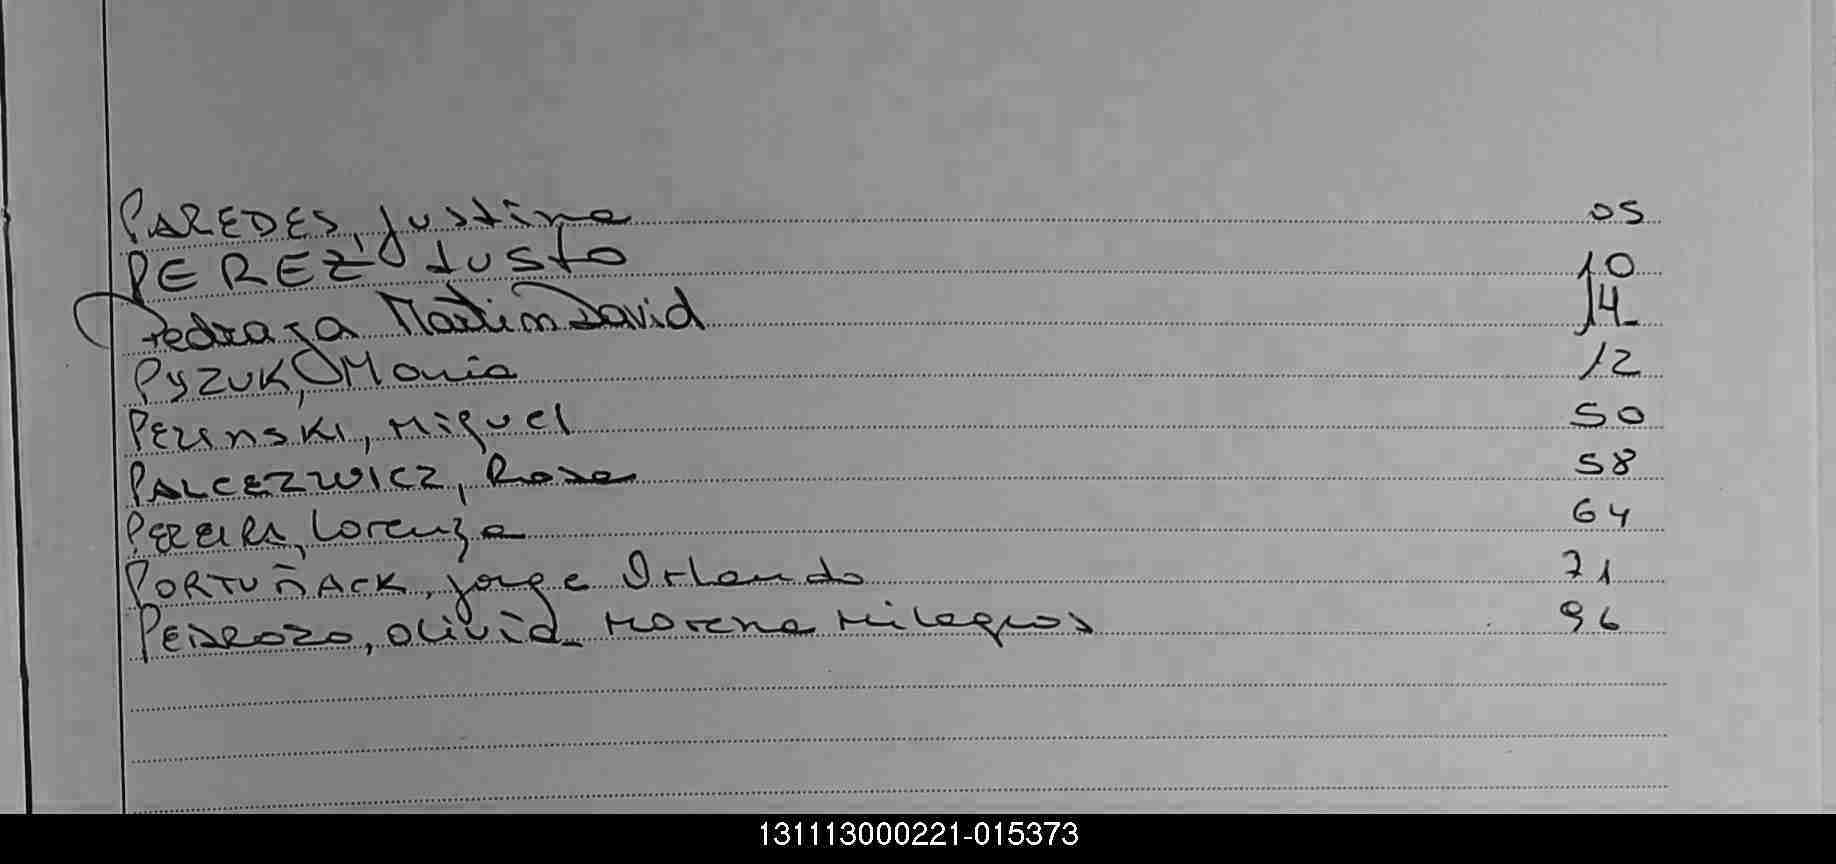 PAREDES, Justina 05
PEREZ, Justo 10
Pedraza Martin David 14
PYZUK, Maria 12
PEZINSKI, Miguel 50
PALCEZWICZ, Rosa 58
PEREIRA, Lorenza 64
PORTUÑACK, Jorge Orlando 71
PEDROZO, Olivia Morena Milagros 96
131113000221-015373